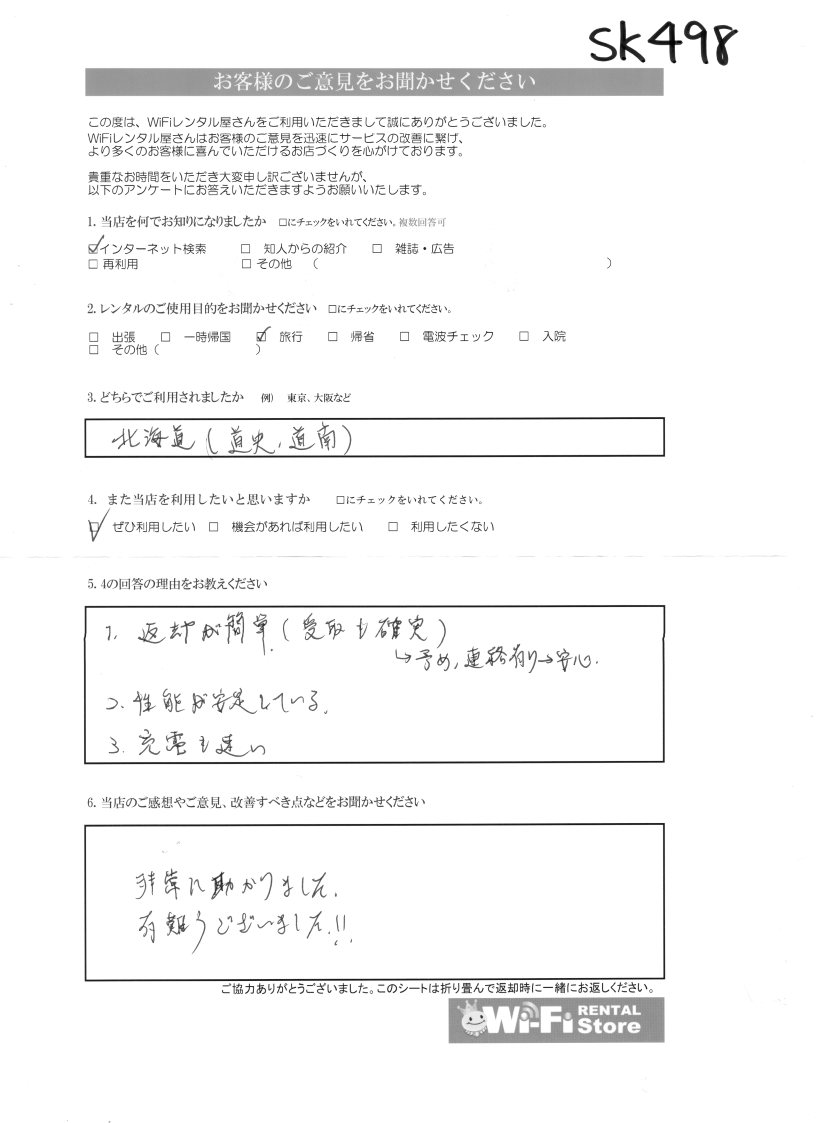 SK498
お客様のご意見をお聞かせください
この度は、WiFiレンタル屋さんをご利用いただきまして誠にありがとうございました。
WiFiレンタル屋さんはお客様のご意見を迅速にサービスの改善に繋げ、
より多くのお客様に喜んでいただけるお店づくりを心がけております。
貴重なお時間をいただき大変申し訳ございませんが、
以下のアンケートにお答えいただきますようお願いいたします。
1. 当店を何でお知りになりましたか □にチェックをいれてください。複数回答可
☑インターネット検索 □ 知人からの紹介 □ 雑誌・広告
□ 再利用 □ その他 ( )
2. レンタルのご使用目的をお聞かせください □にチェックをいれてください。
□ 出張 □ 一時帰国 ☑ 旅行 □ 帰省 □ 電波チェック □ 入院
□ その他 ( )
3. どちらでご利用されましたか 例) 東京、大阪など
北海道(道央,道南)
4. また当店を利用したいと思いますか □にチェックをいれてください。
☑ ぜひ利用したい □ 機会があれば利用したい □ 利用したくない
5. 4の回答の理由をお教えください
1. 返却が簡単.(受取も確実)
↳予め,連絡有り→安心.
2. 性能が安定している.
3. 充電も速い
6. 当店のご感想やご意見、改善すべき点などをお聞かせください
非常に助かりました.
有難うございました.!!
ご協力ありがとうございました。このシートは折り畳んで返却時に一緒にお返しください。
Wi-Fi RENTAL
Store